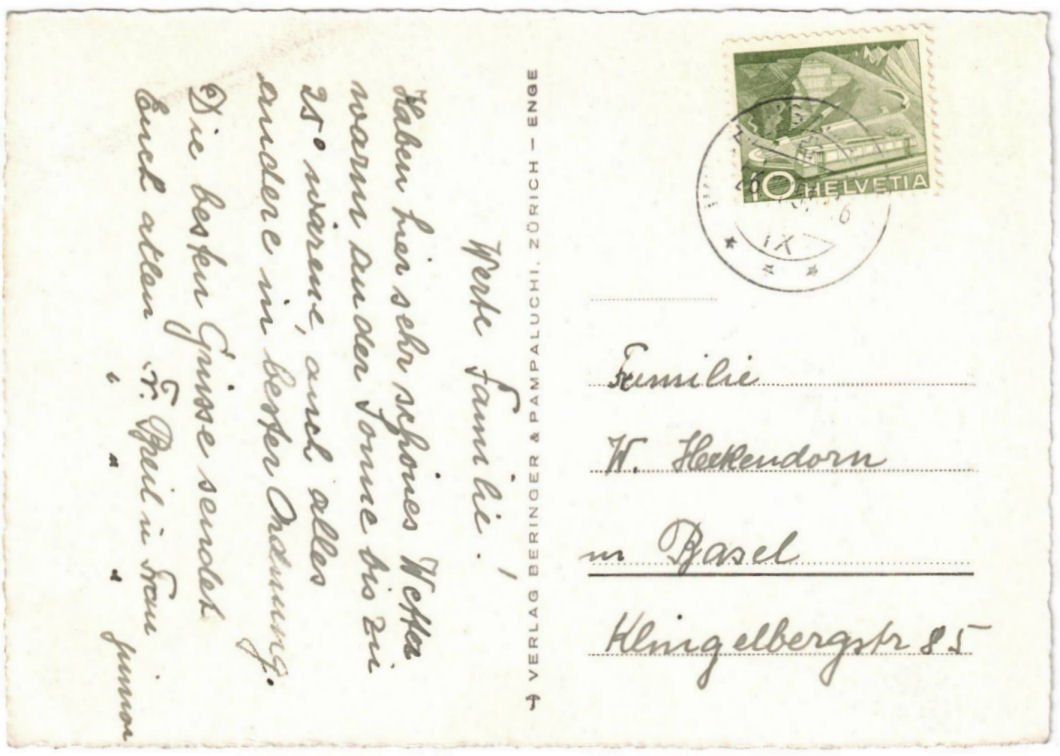 Werte Familie!
Haben hier sehr schönes Wetter
warm an der Sonne bis zu
25° wärme, auch alles
andere in bester Ordnung.
Die besten Grüsse sendet
Euch allen Fr. u Frau
" " " junior
VERLAG BERINGER & PAMPALUCHI, ZÜRICH – ENGE
10 HELVETIA
IX
Familie
W. Heckendorn
in Basel
Klingelbergstr 85